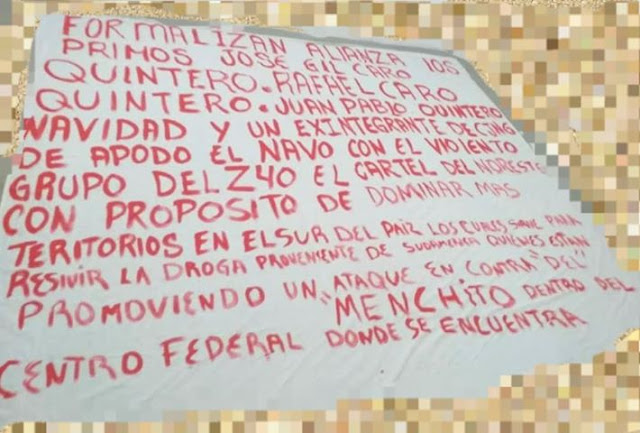 FORMALIZAN ALIANZA LOS
PRIMOS JOSE GIL CARO
QUINTERO. RAFAEL CARO
QUINTERO. JUAN PABLO QUINTERO
NAVIDAD Y UN EXINTEGRANTE DE CJNG
DE APODO EL NAVO CON EL VIOLENTO
GRUPO DEL Z40 EL CARTEL DEL NORESTE
CON PROPOSITO DE DOMINAR MAS
TERITORIOS EN EL SUR DEL PAIZ LOS CUALES SIRVE PARA
RESIVIR LA DROGA PROVENIENTE DE SUDAMERICA QUIENES ESTAN
PROMOVIENDO UN ATAQUE EN CONTRA "DEL"
"MENCHITO DENTRO DEL
CENTRO FEDERAL DONDE SE ENCUENTRA